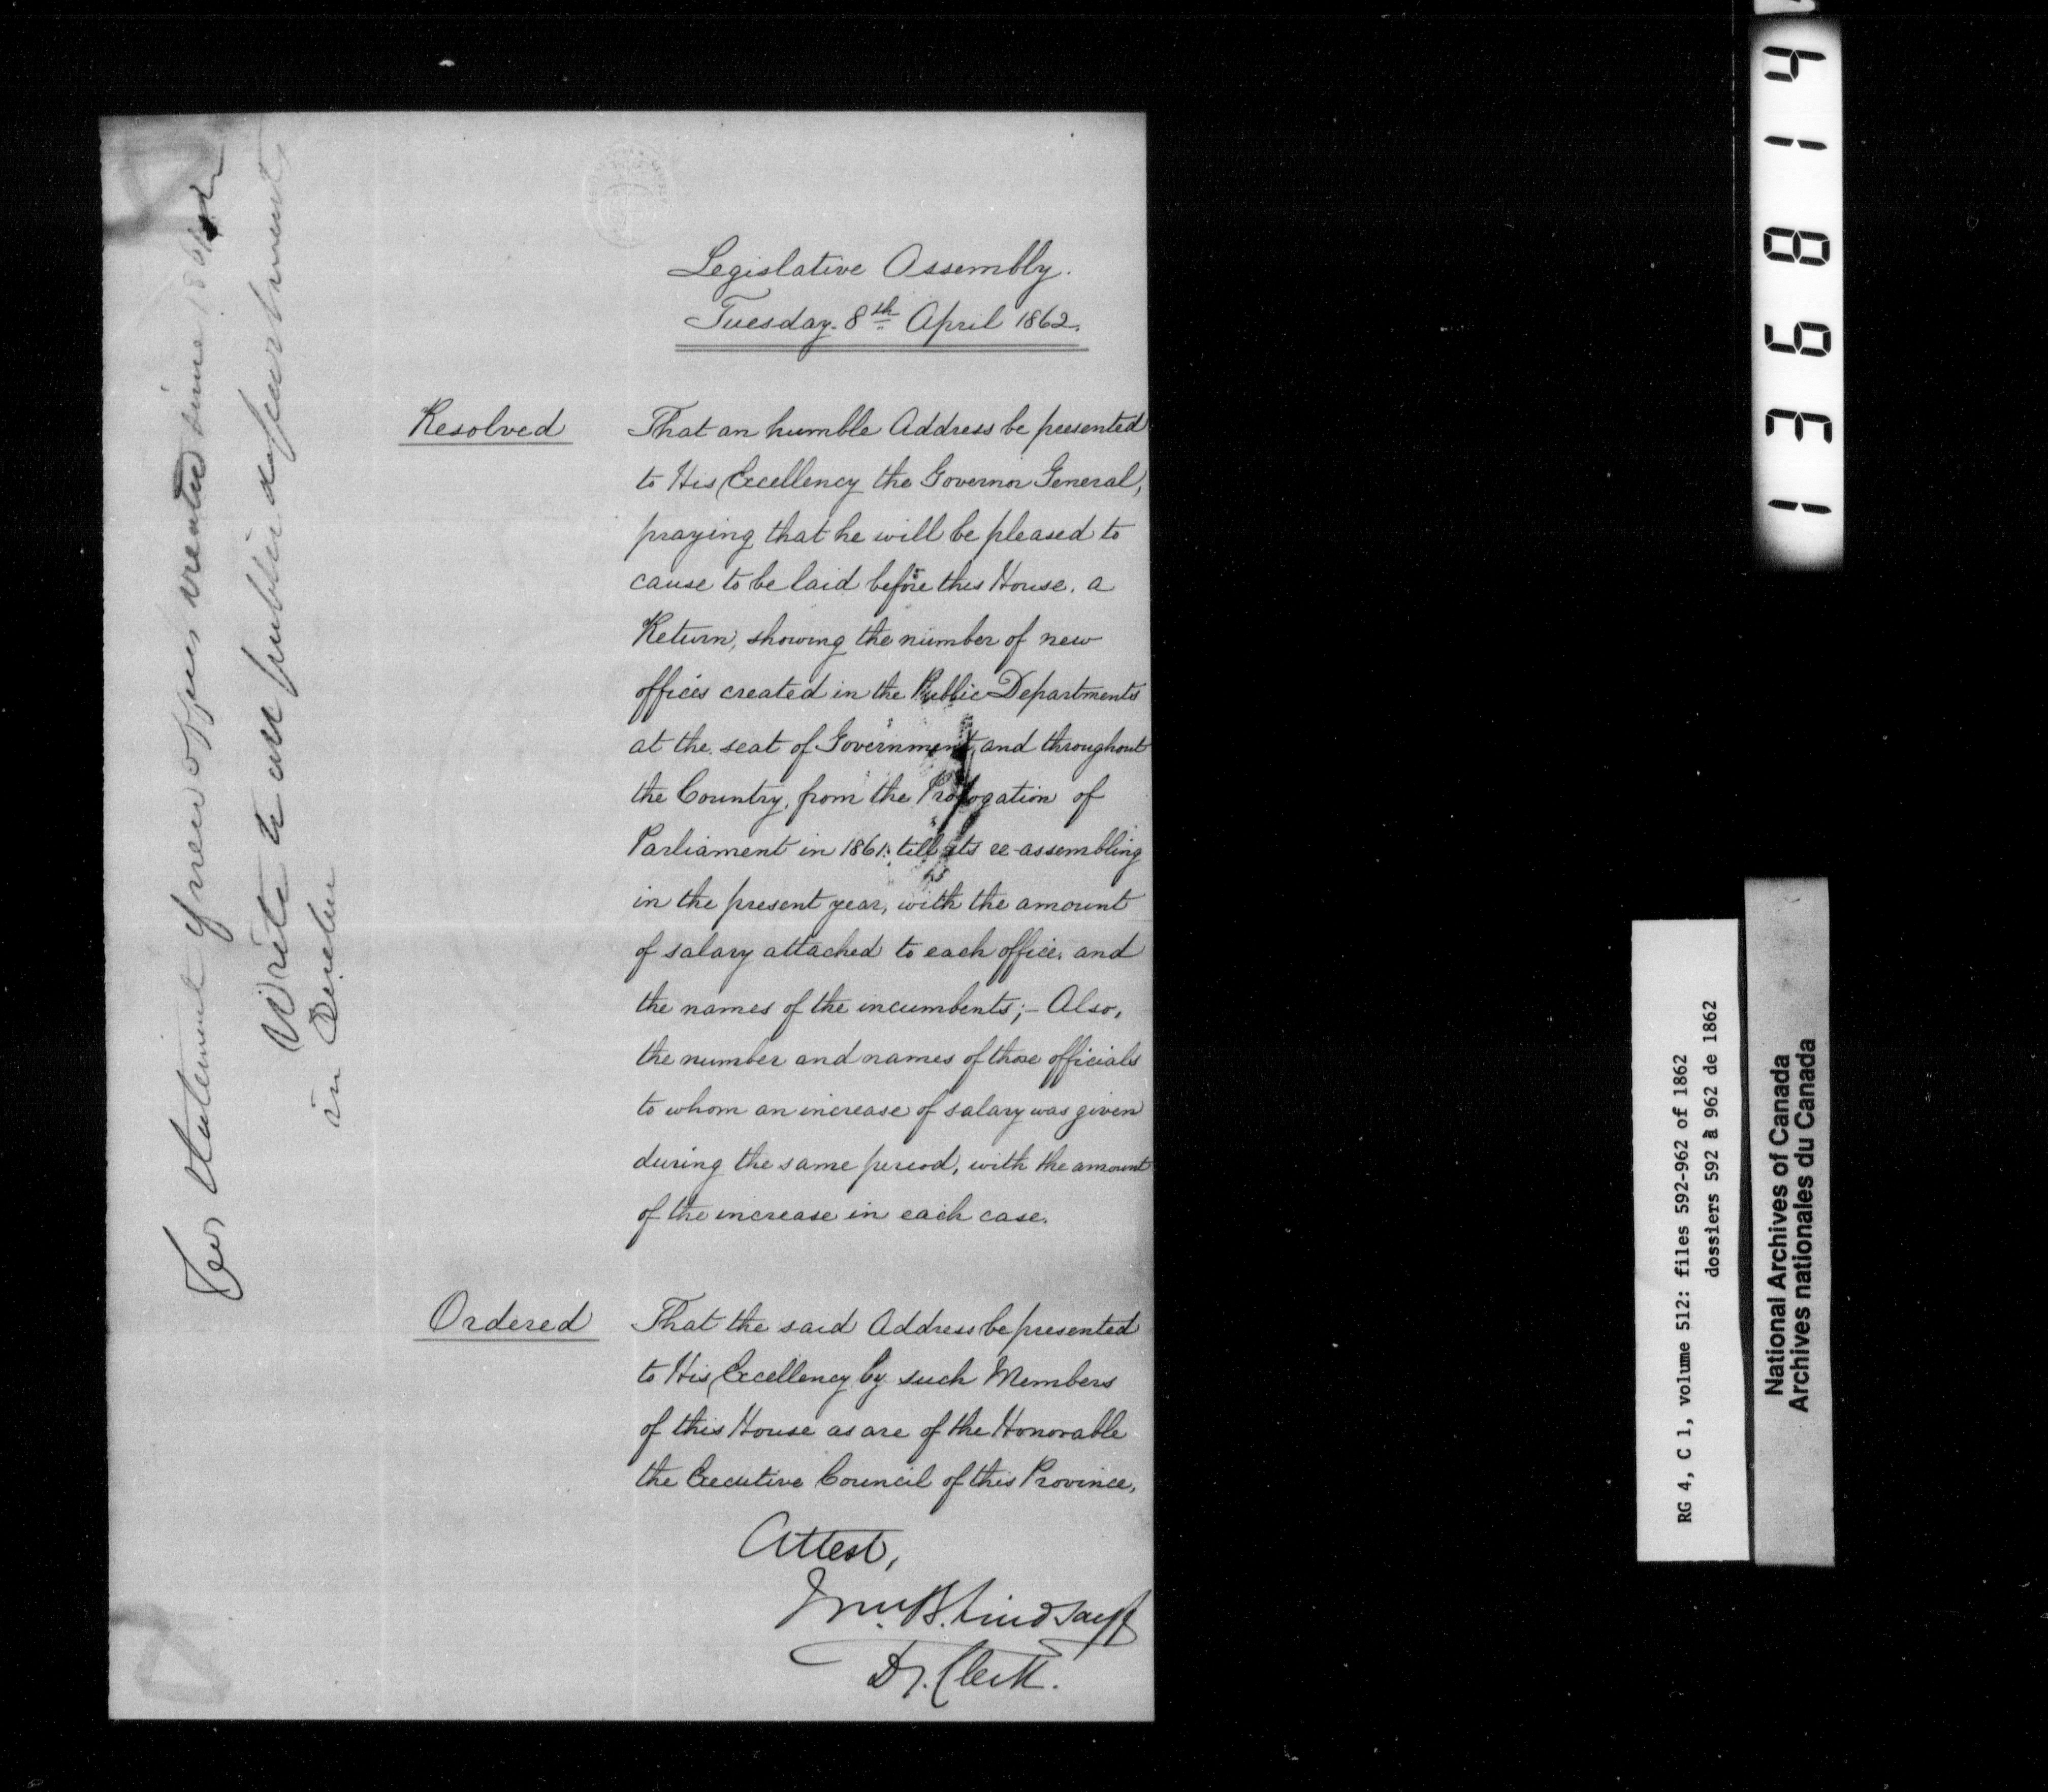 Legislative Assembly.
Tuesday. 8th April 1862.
Resolved That an humble Address be presented
to His Excellency the Governor General,
praying that he will be pleased to
cause to be laid before this House, a
Return, showing the number of new
offices created in the Public Departments
at the seat of Government, and throughout
the Country, from the Prorogation of
Parliament in 1861. till its re-assembling
in the present year, with the amount
of salary attached to each office, and
the names of the incumbents;- Also,
the number and names of those officials
to whom an increase of salary was given
during the same period, with the amount
of the increase in each case.
Ordered That the said Address be presented
to His Excellency by such Members
of this House as are of the Honorable
the Executive Council of this Province,
Attest,
Wm. B. Lindsay
Dy. Clerk.
For Statement of new offices created since
Write to all public departments
in Quebec
136814
RG 4, C 1, volume 512: files 592-962 of 1862
dossiers 592 à 962 de 1862
National Archives of Canada
Archives nationales du Canada